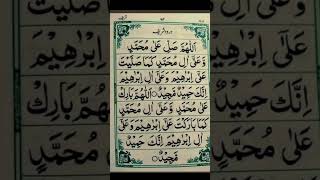 درود شریف
اَللّٰهُمَّ صَلِّ عَلٰى مُحَمَّدٍ
وَّعَلٰٓى اٰلِ مُحَمَّدٍ كَمَا صَلَّيْتَ
عَلٰٓى اِبْرٰهِيْمَ وَعَلٰٓى اٰلِ اِبْرٰهِيْمَ
اِنَّكَ حَمِيْدٌ مَّجِيْدٌ○ اَللّٰهُمَّ بَارِكْ
عَلٰى مُحَمَّدٍ وَّعَلٰٓى اٰلِ مُحَمَّدٍ
كَمَا بَارَكْتَ عَلٰٓى اِبْرٰهِيْمَ وَعَلٰٓى
اٰلِ اِبْرٰهِيْمَ اِنَّكَ حَمِيْدٌ
مَّجِيْدٌ○